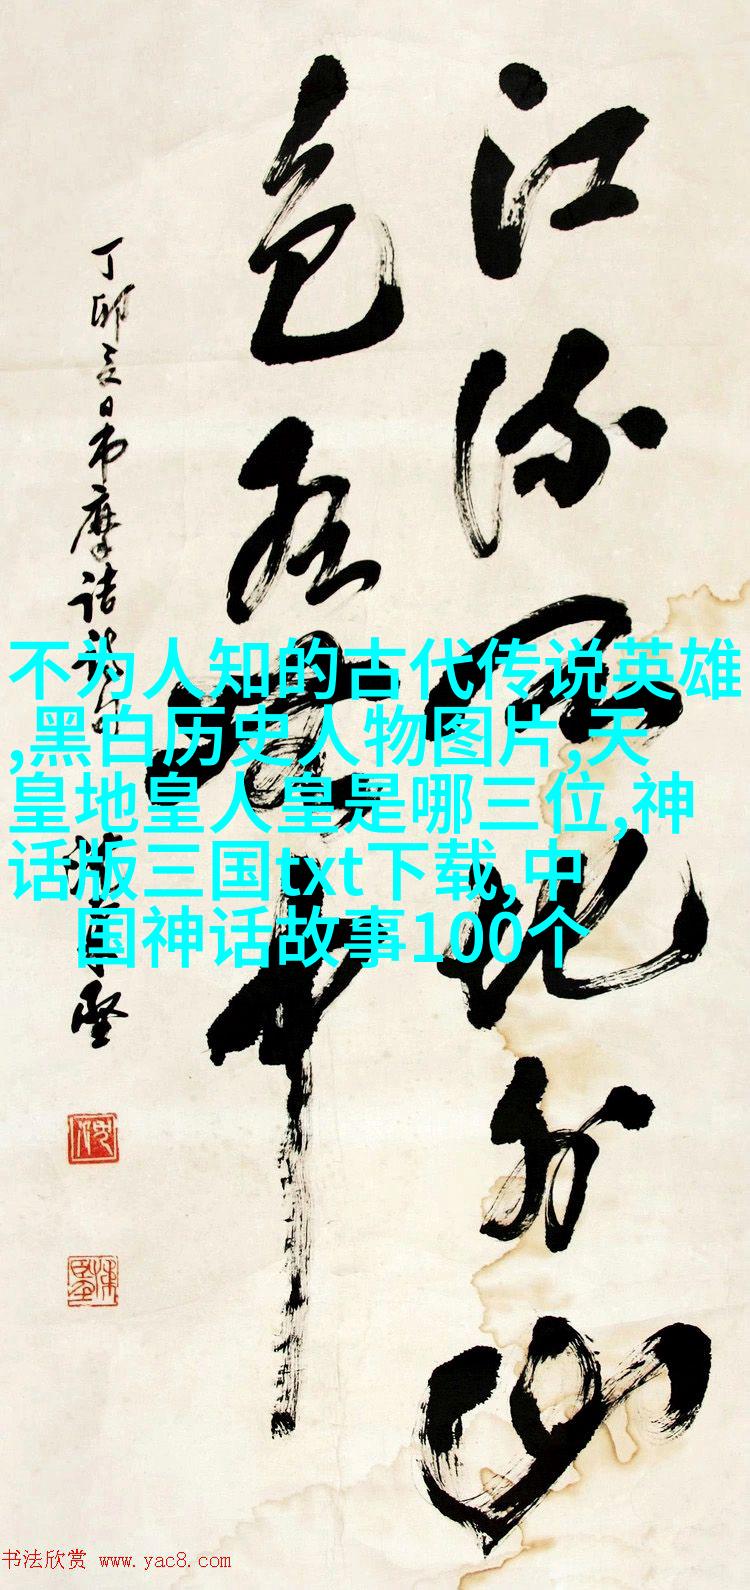 江流天地外山
色有无中
丁卯夏日书摩诘诗句
不为人知的古代传说英雄
,黑白历史人物图片,天
皇地皇人皇是哪三位,神
话版三国txt下载,中
国神话故事100个
书法欣赏 www.yac8.com